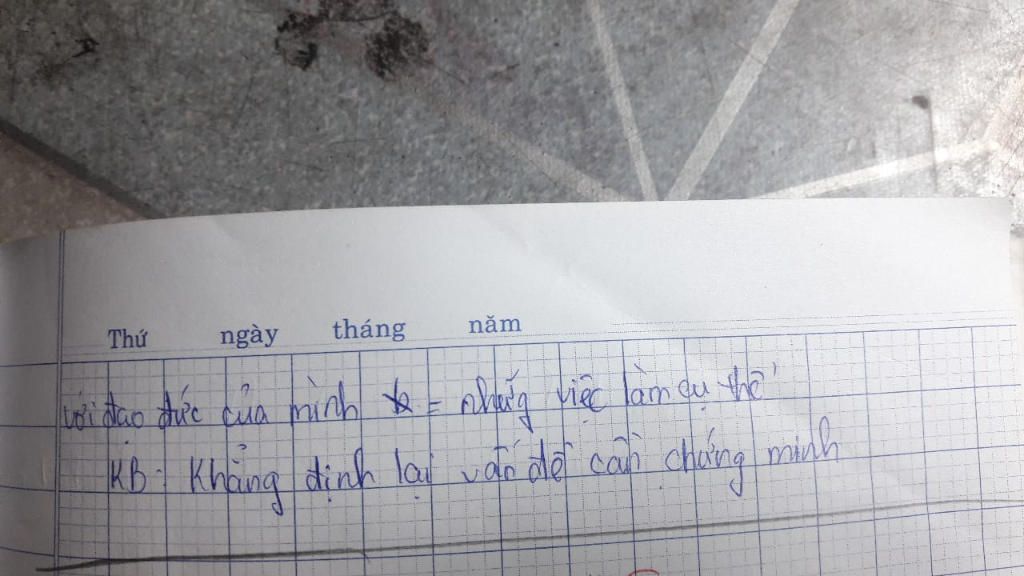 Thứ ngày tháng năm
với đạo đức của mình = những việc làm cụ thể
KB: Khẳng định lại vấn đề cần chứng minh